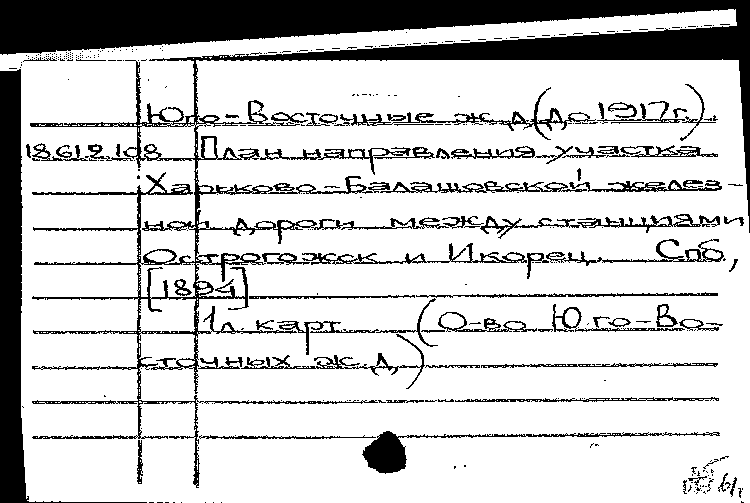 Юго-Восточные ж. д. (до 1917г.)
18.612.108 План направления участка
Харьково-Балашовской желез-
ной дороги между станциями
Острогожск и Икорец. Спб,
[1894]
1л. карт. (О-во Юго-Во-
сточных ж. д.)